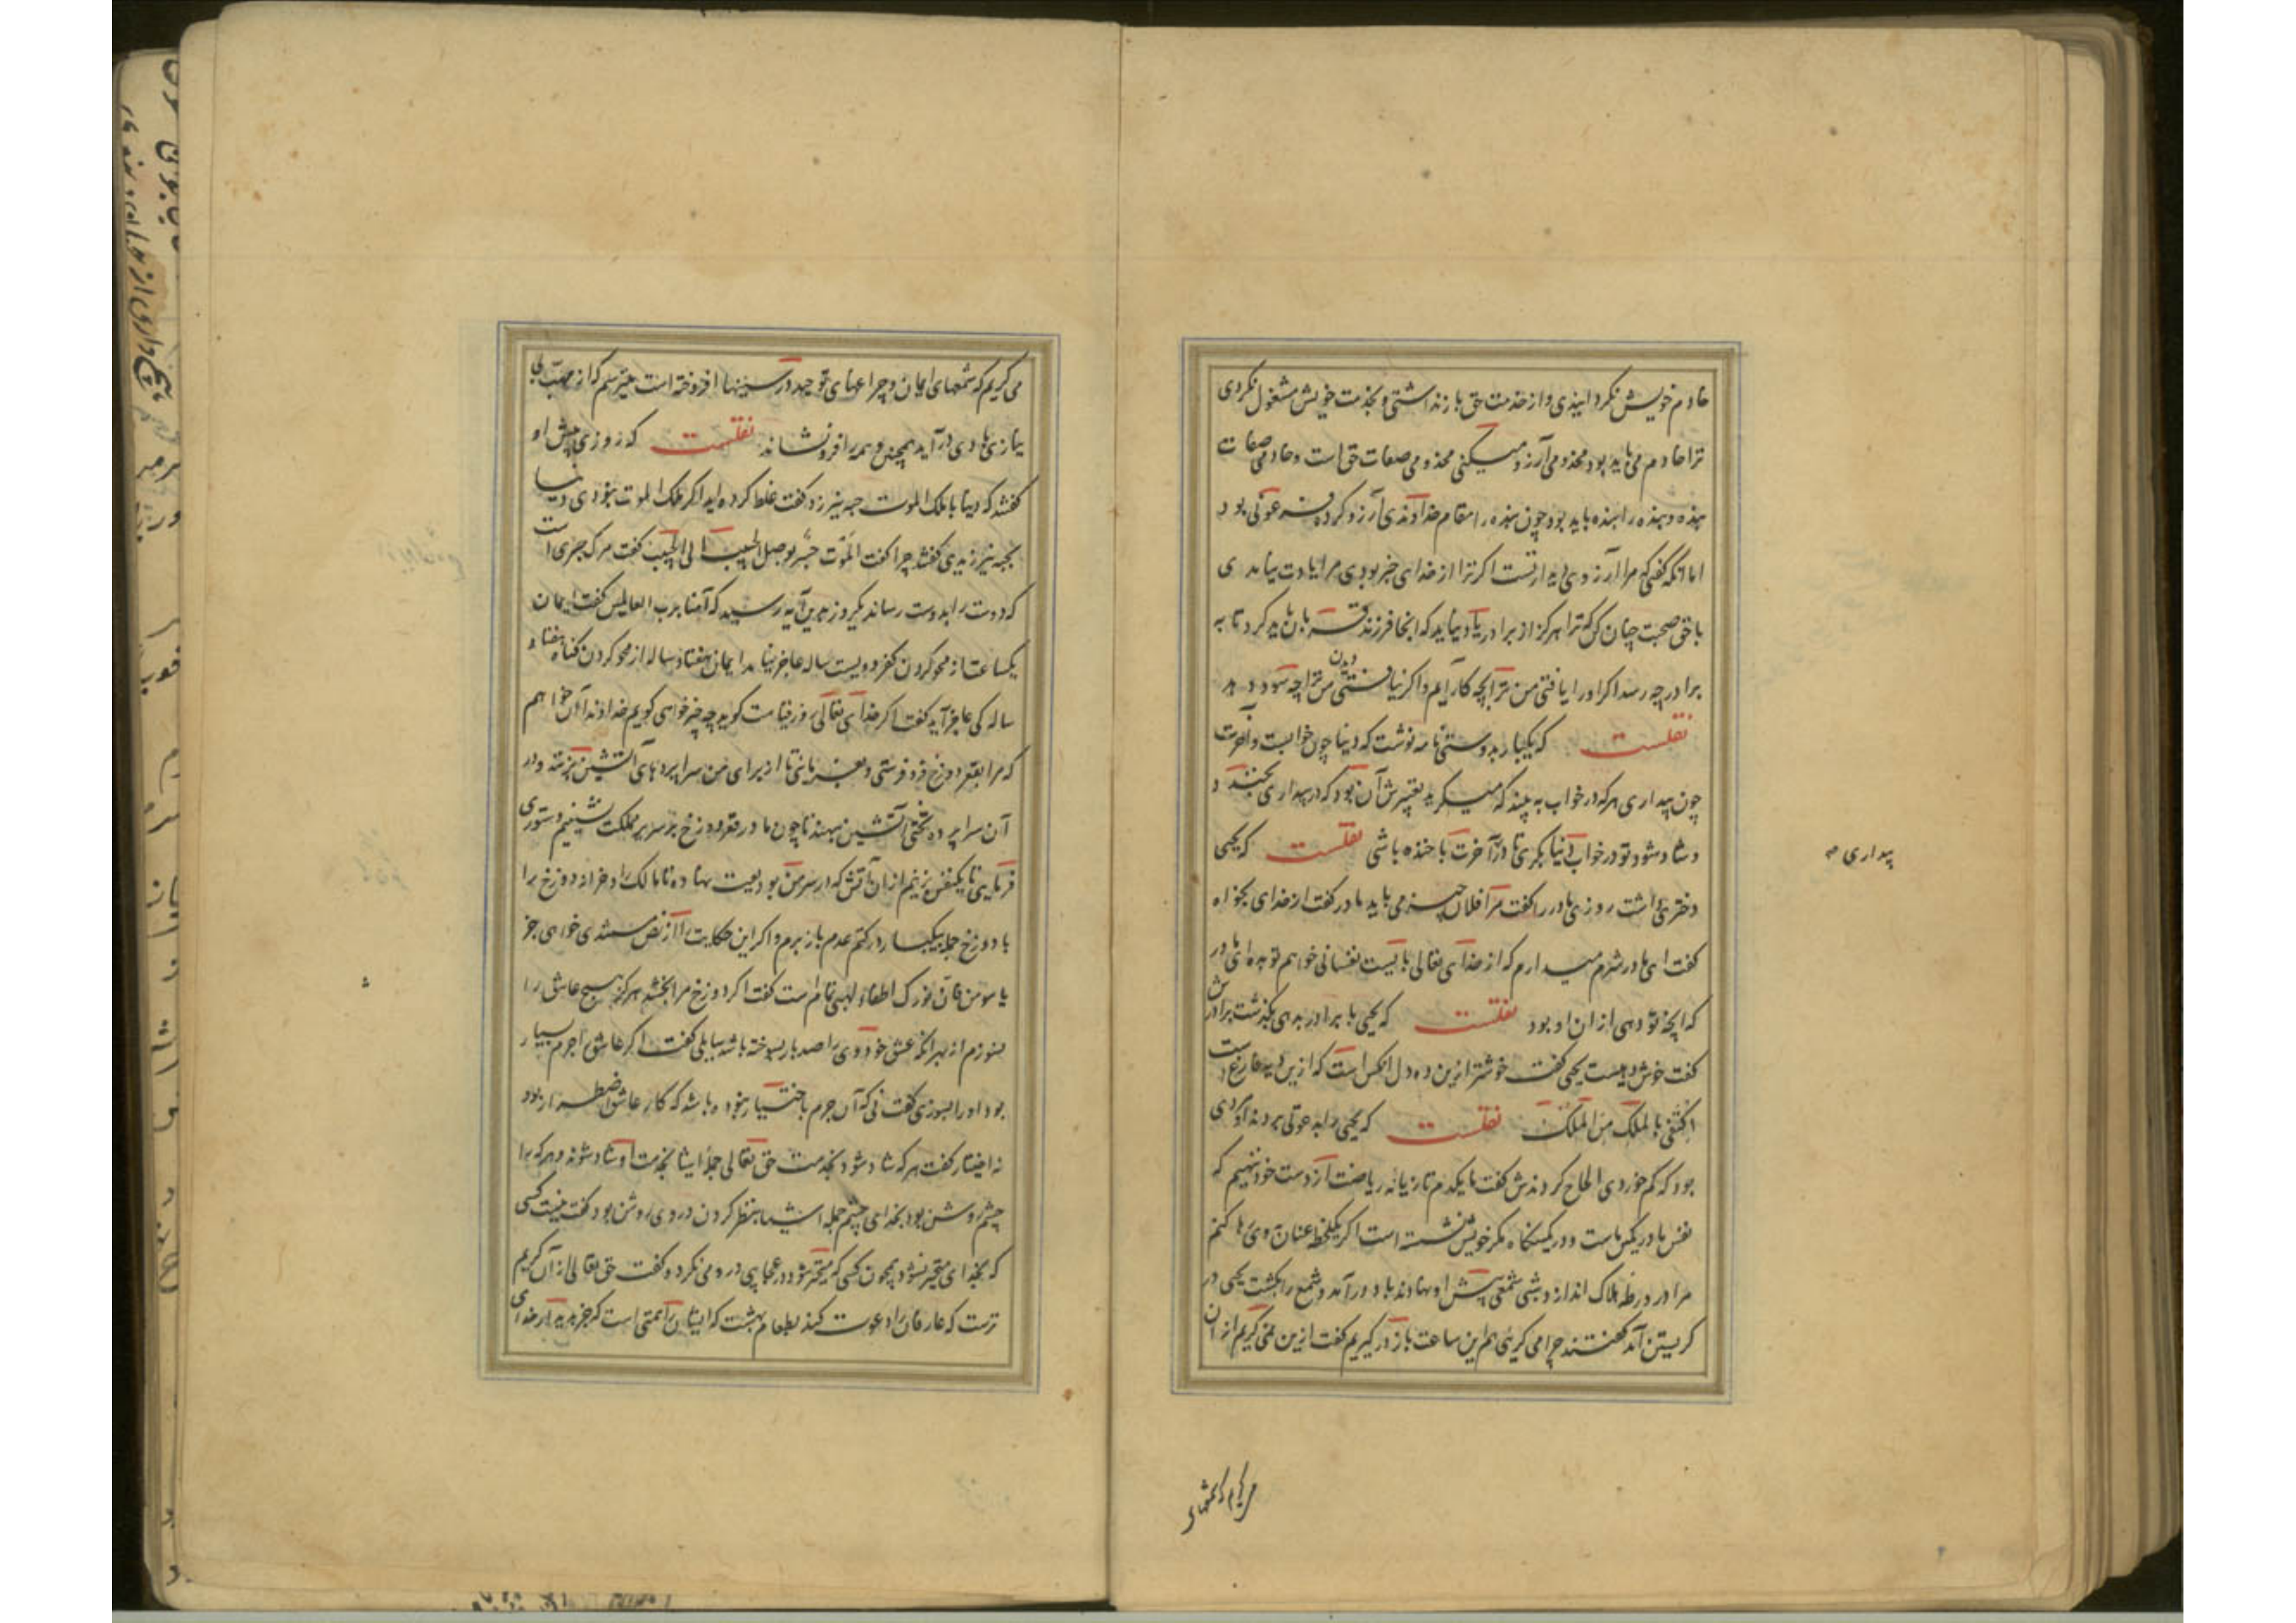 خادم خویش نکردانیدی و از خدمت حق باز نداشتی و بخدمت خویش مشغول نکردی
ترا خادم می باید بود مخدومی آرزو میکنی مخدومی صفات حق است و خادمی صفات
بنده و بنده را بنده باید بود چون بنده را مقام خداوندی آرزو کرد فرعونی بود
اما آنکه گفتی که مرا آرزوی دیدار تست اکر ترا از خدای خبر بودی مرا یادت نیامدی
با حق صحبت چنان کن که ترا هرکز از برادر یاد نیاید که آنجا فرزند قربان باید کرد تا به
برادر چه رسد اکر او را یافتی من ترا بچه کار آیم و اکر نیافتی از دیدن من ترا چه سود دهد
نقلست که یکبار بدوستی نامه نوشت که دنیا چون خوابست و آخرت
چون بیداری هرکه در خواب به بیند که میکرید تعبیرش آن بود که در بیداری بخندد و
و شاد شود تو در خواب دنیا بکری تا در آخرت با خنده باشی نقلست که یحیی
دختری داشت روزی مادر را کفت مرا فلان چیز می باید مادر کفت از خدای بخواه
کفت ای مادر شرم میدارم که از خدای تعالی بایست نفسانی خواهم تو بده ای مادر
که آنچه تو دهی از آن او بود نقلست که یحیی با برادر بدهی بکذشت برادرش
کفت خوش دهیست یحیی کفت خوشتر ازین ده دل آنکس است که ازین ده فارغ است
اکتفی بالملک من الملک نقلست که یحیی را بدعوتی بردند او مردی
بود که کم خوردی الحاح کردندش کفت ما یکدم تازیانه ریاضت از دست خود ننهیم که
نفس ما در کمین ماست و در کمینکاه مکر خویش نشسته است اکر یک لحظه عنان وی رها کنم
مرا در ورطه هلاک اندازد شبی شمعی پیش او نهادند باد در آمد و شمع را بکشت یحیی در
کریستن آمد کفتند چرا می کریی هم این ساعت باز درکیریم کفت ازین نمی کریم از آن
بیداری
می کریم که شمعهای
می کریم که شمعهای ایمان و چراغهای توحید در سینها افروخته است میترسم که از مهب بی
نیازی بادی درآید همچنین و همه را فرو نشاند نقلست که روزی پیش او
کفتند که دنیا با ملک الموت حبه نیرزد کفت غلط کرده اید اکر ملک الموت نبودی دنیا
بحبه نیرزیدی کفتند چرا کفت الموت جسر یوصل الحبیب الی الحبیب کفت مرک جسری است
که دوست را بدوست رساند یکروز بدین آیه رسید که آمنا برب العالمین کفت ایمان
یکساعت از محو کردن کفر دویست ساله عاجز نیامد ایمان هفتاد ساله از محو کردن کناه هفتاد
ساله کی عاجز آید کفت اکر خدای تعالی روز قیامت کوید چه چیز خواهی کویم خداوندا آن خواهم
که مرا بقعر دوزخ فرو فرستی و بفرمائی تا از برای من سراپردهای آتشین بزنند و در
آن سراپرده تختی آتشین بنهند تا چون ما در قعر دوزخ بر سریر مملکت نشینیم دستوری
فرمایی تا یکنفس بزنیم از آن آتش که در سر من بودیعت نهاده تا مالک را و خزانه دوزخ را
با دوزخ جمله بیکبار در کتم عدم باز برم و اکر این حکایت را از نص مسندی خواهی جز
یا مومن فان نورک اطفاء لهبی تمام است کفت اکر دوزخ مرا بخشند هرکز هیچ عاشق را
بنسوزم از بهر آنکه عشق خود وی را صد بار سوخته باشد سایلی کفت اکر عاشق را جرم بسیار
بود او را بسوزی کفت نی که آن جرم باختیار نبوده باشد که کار عاشق اضطرار بود
نه اختیار کفت هرکه شاد شود بخدمت حق تعالی جمله اشیا بخدمت او شاد شوند و هرکه را
چشم روشن بود بخدای چشم جمله اشیا بنظر کردن در وی روشن بود کفت نیست کسی
که بخدای متحیر شود همچون کسی که متحیر شود در عجایبی که بر وی می کذرد و کفت حق تعالی از آن کریم
ترست که عارفان را دعوت کند بطعام بهشت که ایشان را همتی است که جز بدیدار خدای